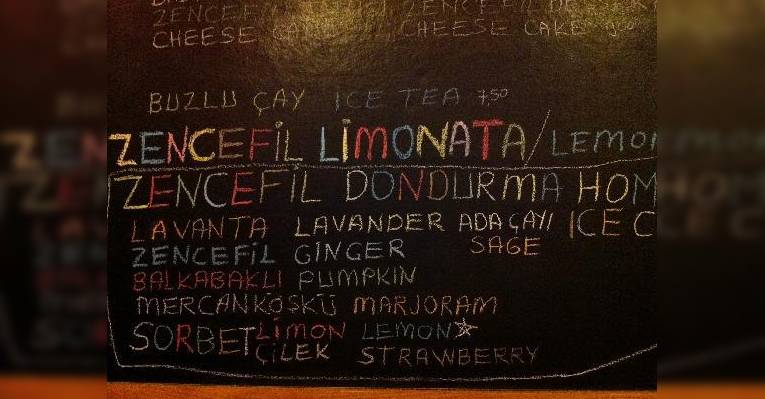 ZENCEFİL
CHEESE CAKE CHEESE CAKE
BUZLU ÇAY ICE TEA 7,50
ZENCEFİL LİMONATA/LEMO
ZENCEFİL DONDURMA HOM
LAVANTA LAVANDER ADA ÇAYI ICE C
ZENCEFİL GINGER SAGE
BALKABAKLI PUMPKIN
MERCANKÖŞKÜ MARJORAM
SORBET LİMON LEMON
ÇİLEK STRAWBERRY